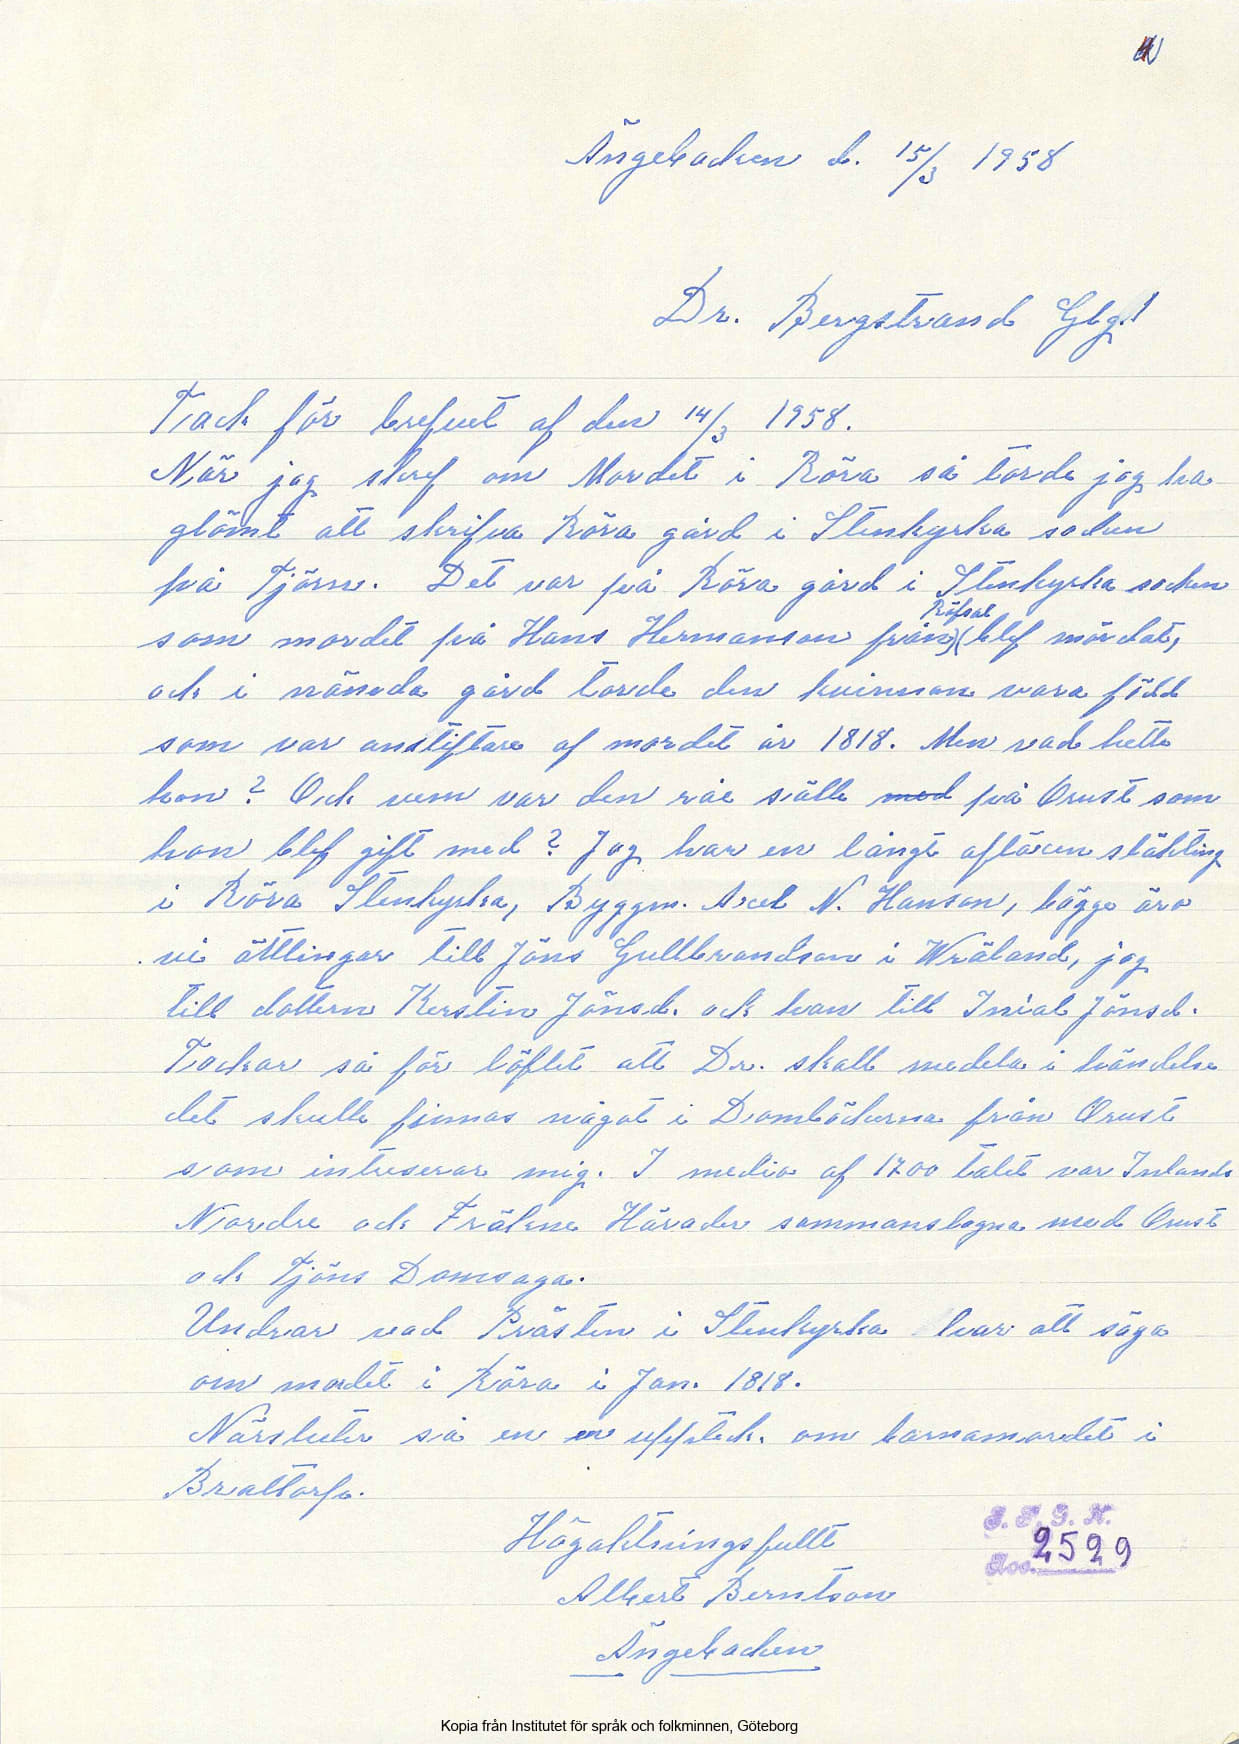 Ängebacken d. 15/3 1958
Dr. Bergstrand Gbg!
Tack för brefvet af den 14/3 1958.
När jag skref om Mordet i Röra så torde jag ha
glömt att skrifva Röra gård i Stenkyrka socken
på Tjörn. Det var på Röra gård i Stenkyrka socken
Röfsal
som mordet på Hans Hermanson från) (blef mördat,
och i nämda gård torde den kvinnan vara född
som var anstiftare af mordet år 1818. Men vad hette
hon? Och vem var den råe sälle med på Orust som
hon blef gift med? Jag har en långt aflägsen släkting
i Röra Stenkyrka, Byggm. Axel N. Hanson, bägge äro
vi ättlingar till Jöns Gullbrandson i Wräland, jag
till dottern Kerstin Jönsd. och han till Inial Jönsd.
Tackar så för löftet att Dr. skall medela i händelse
det skulle finnas något i Domböckerna från Orust
som intreserar mig. I media af 1700 talet var Inlands
Nordre och Fräkne Härader sammanslagna med Orust
och Tjöns Domsaga.
Undrar vad Prästen i Stenkyrka har att säga
om mordet i Röra i Jan. 1818.
Närsluter så en en uppteck. om barnamordet i
Brattorp.
Högaktningsfullt
Albert Berntson
Ängebacken
I. F. G. H.
Acc. 2529
Kopia från Institutet för språk och folkminnen, Göteborg